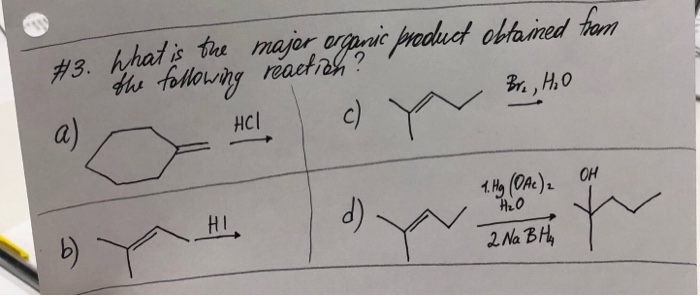 #3. What is the major organic product obtained from
the following reaction?
a)
HCl
c)
Br₂, H₂O
b)
HI
d)
1. Hg(OAc)₂
H₂O
2 NaBH₄
OH